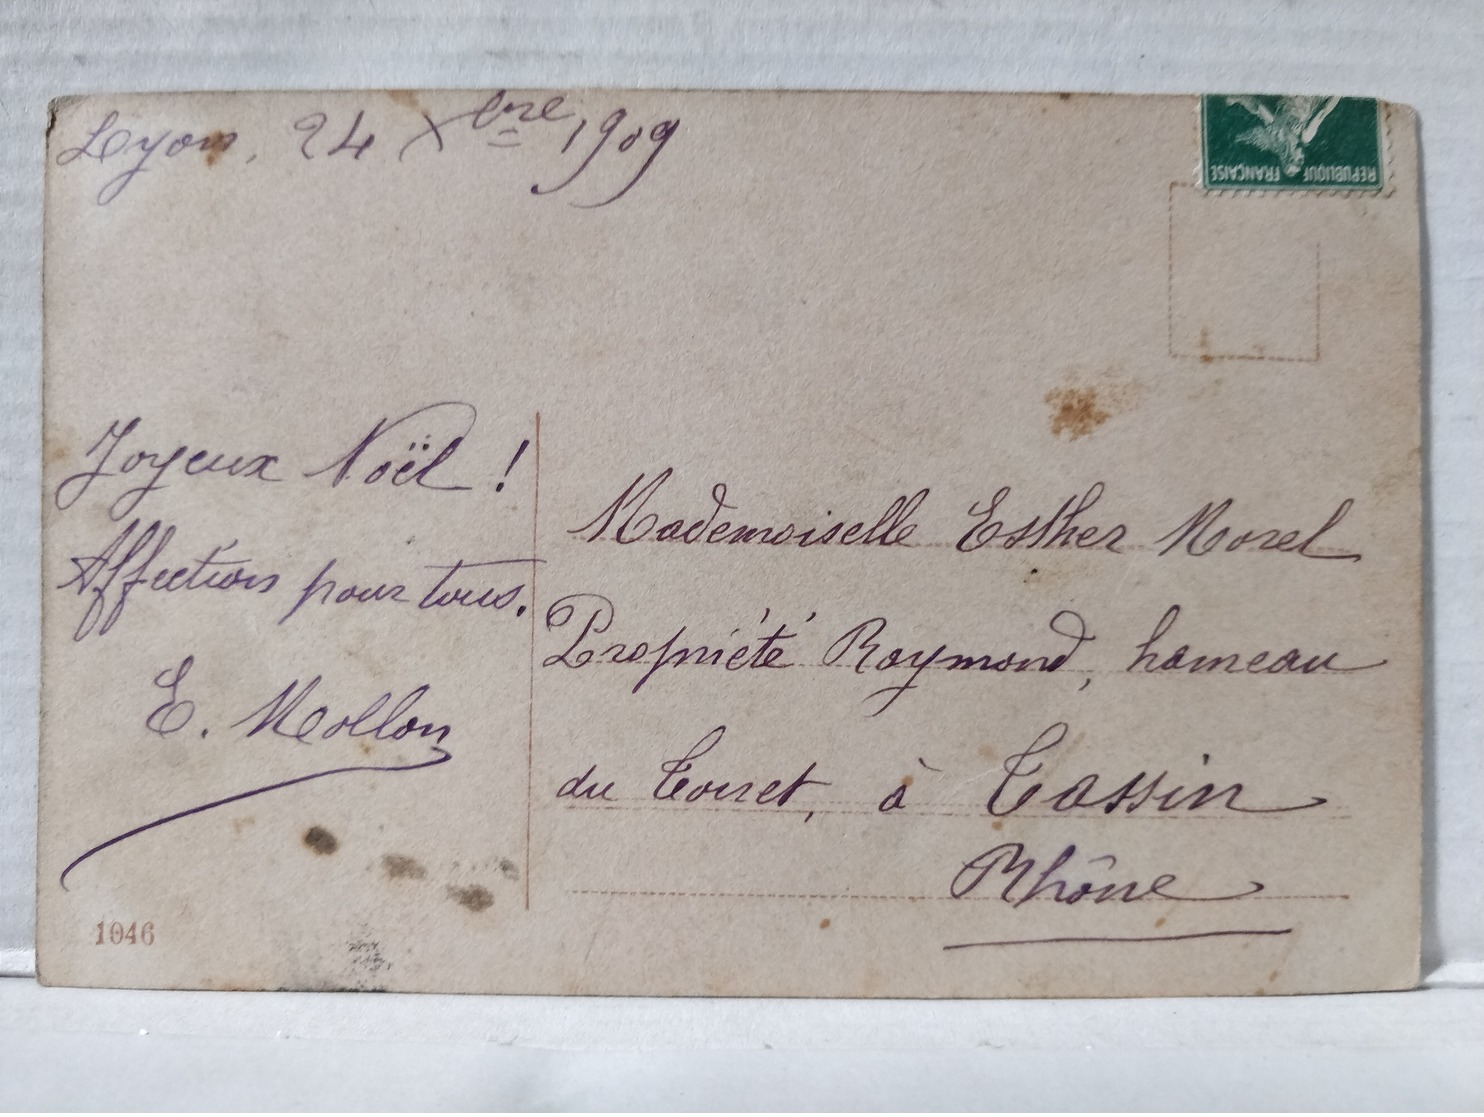 Lyon, 24 Xbre 1909
REPUBLIQUE FRANÇAISE
Joyeux Noël !
Affection pour tous.
E. Mollon
Mademoiselle Esther Morel
Propriété Raymond, hameau
du Torret, à Tassin
Rhône
1046